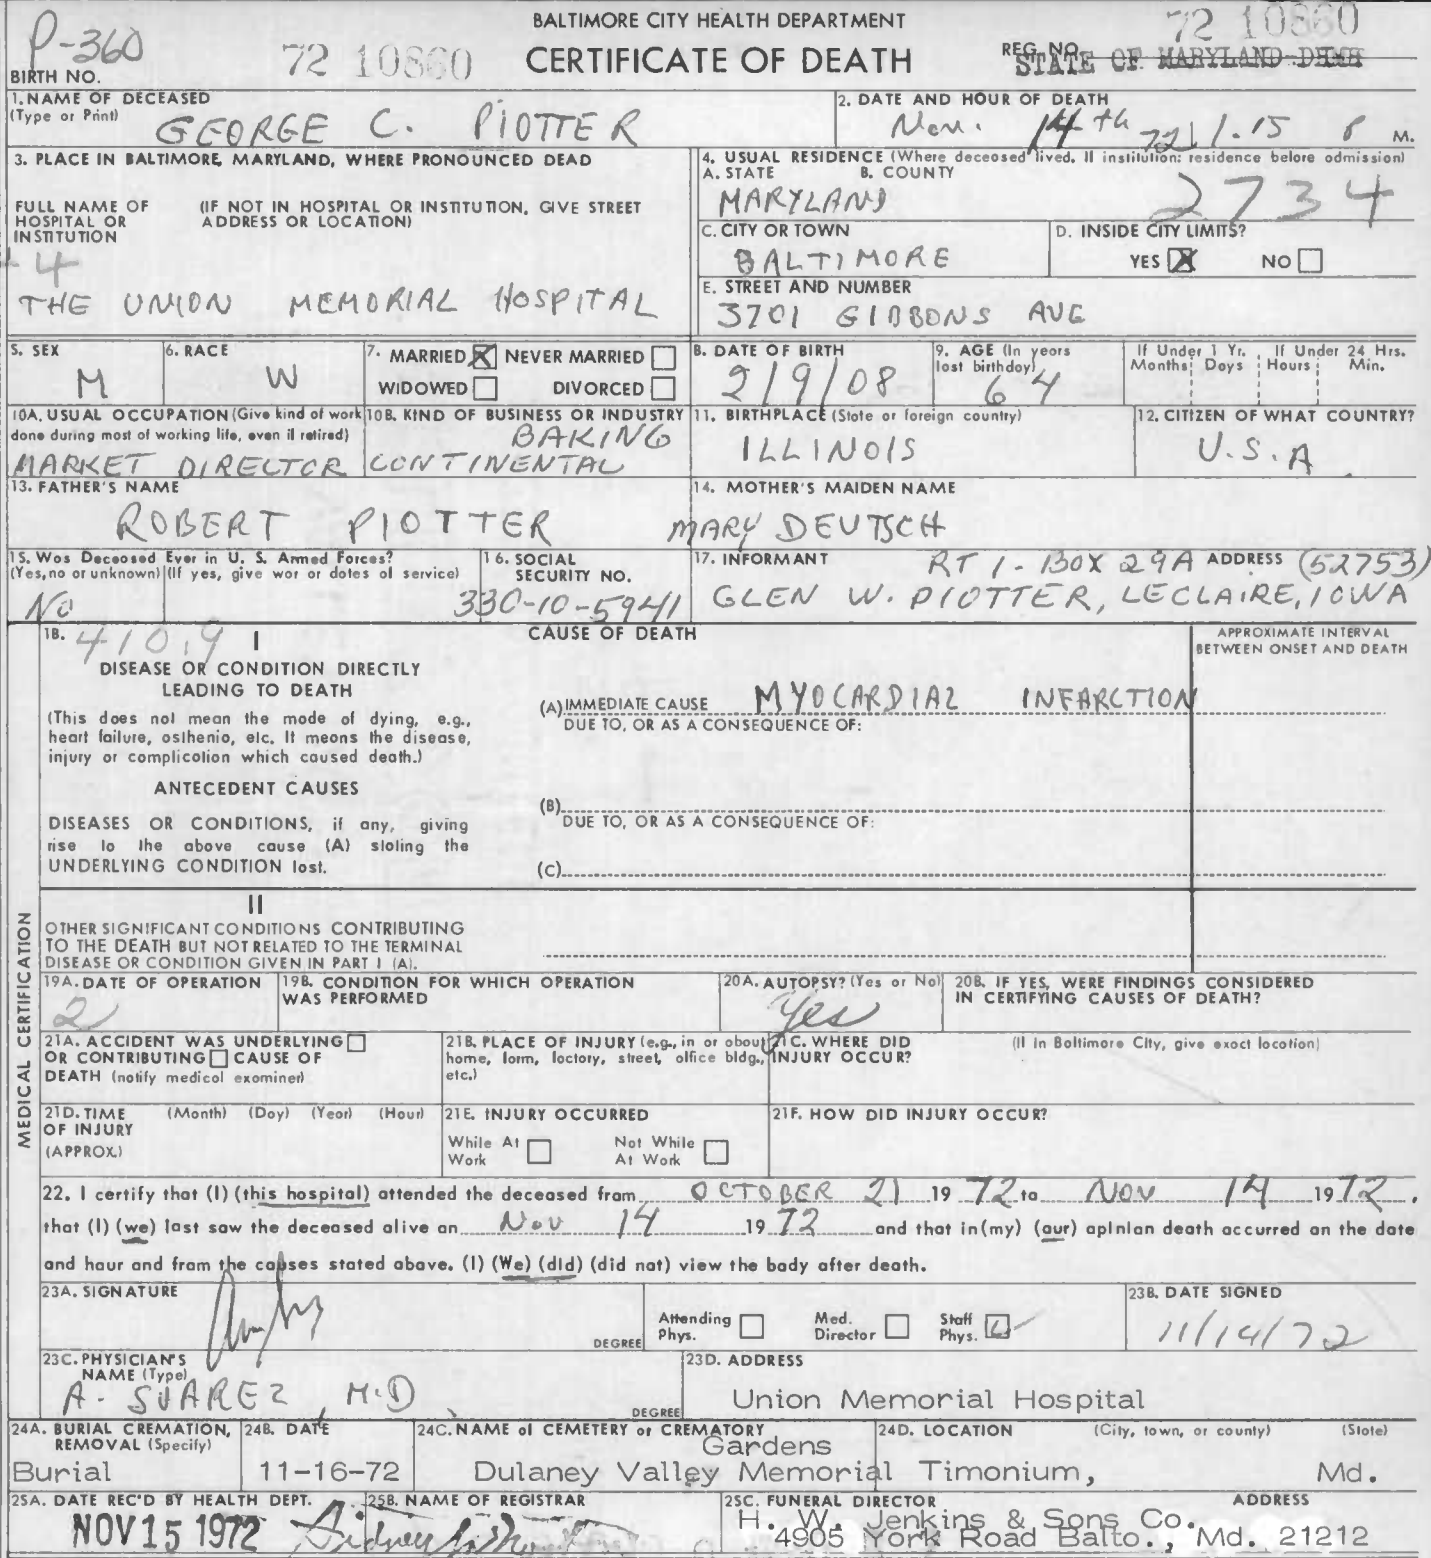 BALTIMORE CITY HEALTH DEPARTMENT
CERTIFICATE OF DEATH
P-360
BIRTH NO.
72 10860
72 10860
REG. NO.
STATE OF MARYLAND-DHMH
1. NAME OF DECEASED
(Type or Print)
GEORGE C. PIOTTER
2. DATE AND HOUR OF DEATH
Nov. 14th 72 1.15 P M.
3. PLACE IN BALTIMORE, MARYLAND, WHERE PRONOUNCED DEAD
FULL NAME OF HOSPITAL OR INSTITUTION
(IF NOT IN HOSPITAL OR INSTITUTION, GIVE STREET ADDRESS OR LOCATION)
4
THE UNION MEMORIAL HOSPITAL
4. USUAL RESIDENCE (Where deceased lived. If institution: residence before admission)
A. STATE
B. COUNTY
MARYLAND
2734
C. CITY OR TOWN
BALTIMORE
D. INSIDE CITY LIMITS?
YES X NO
E. STREET AND NUMBER
3701 GIBBONS AVE
5. SEX
M
6. RACE
W
7. MARRIED X NEVER MARRIED
WIDOWED DIVORCED
8. DATE OF BIRTH
2/9/08
9. AGE (In years last birthday)
64
If Under 1 Yr. Months Days
If Under 24 Hrs. Hours Min.
10A. USUAL OCCUPATION (Give kind of work done during most of working life, even if retired)
MARKET DIRECTOR
10B. KIND OF BUSINESS OR INDUSTRY
BAKING
CONTINENTAL
11. BIRTHPLACE (State or foreign country)
ILLINOIS
12. CITIZEN OF WHAT COUNTRY?
U.S.A.
13. FATHER'S NAME
ROBERT PIOTTER
14. MOTHER'S MAIDEN NAME
MARY DEUTSCH
15. Was Deceased Ever in U. S. Armed Forces?
(Yes, no or unknown) (If yes, give war or dates of service)
No
16. SOCIAL SECURITY NO.
330-10-5941
17. INFORMANT
ADDRESS
RT 1 - BOX 29A (52753)
GLEN W. PIOTTER, LECLAIRE, IOWA
18. 410.9 I
CAUSE OF DEATH
APPROXIMATE INTERVAL BETWEEN ONSET AND DEATH
DISEASE OR CONDITION DIRECTLY LEADING TO DEATH
(This does not mean the mode of dying, e.g., heart failure, asthenia, etc. It means the disease, injury or complication which caused death.)
(A) IMMEDIATE CAUSE MYOCARDIAL INFARCTION
DUE TO, OR AS A CONSEQUENCE OF:
ANTECEDENT CAUSES
DISEASES OR CONDITIONS, if any, giving rise to the above cause (A) stating the UNDERLYING CONDITION last.
(B)
DUE TO, OR AS A CONSEQUENCE OF:
(C)
MEDICAL CERTIFICATION
II
OTHER SIGNIFICANT CONDITIONS CONTRIBUTING TO THE DEATH BUT NOT RELATED TO THE TERMINAL DISEASE OR CONDITION GIVEN IN PART I (A).
19A. DATE OF OPERATION
2
19B. CONDITION FOR WHICH OPERATION WAS PERFORMED
20A. AUTOPSY? (Yes or No)
Yes
20B. IF YES, WERE FINDINGS CONSIDERED IN CERTIFYING CAUSES OF DEATH?
21A. ACCIDENT WAS UNDERLYING OR CONTRIBUTING CAUSE OF DEATH (notify medical examiner)
21B. PLACE OF INJURY (e.g., in or about home, farm, factory, street, office bldg., etc.)
21C. WHERE DID INJURY OCCUR?
(If in Baltimore City, give exact location)
21D. TIME OF INJURY (APPROX.)
(Month) (Day) (Year) (Hour)
21E. INJURY OCCURRED
While At Work
Not While At Work
21F. HOW DID INJURY OCCUR?
22. I certify that (I) (this hospital) attended the deceased from OCTOBER 21 1972 to Nov 14 1972,
that (I) (we) last saw the deceased alive on Nov 14 1972 and that in (my) (our) opinion death occurred on the date
and hour and from the causes stated above. (I) (We) (did) (did not) view the body after death.
23A. SIGNATURE
DEGREE
Attending Phys.
Med. Director
Staff Phys.
23B. DATE SIGNED
11/14/72
23C. PHYSICIAN'S NAME (Type)
A. SUAREZ, M.D.
DEGREE
23D. ADDRESS
Union Memorial Hospital
24A. BURIAL CREMATION, REMOVAL (Specify)
Burial
24B. DATE
11-16-72
24C. NAME of CEMETERY or CREMATORY
Gardens
Dulaney Valley Memorial
24D. LOCATION (City, town, or county) (State)
Timonium, Md.
25A. DATE REC'D BY HEALTH DEPT.
NOV 15 1972
25B. NAME OF REGISTRAR
25C. FUNERAL DIRECTOR
ADDRESS
H. W. Jenkins & Sons Co.
4905 York Road Balto., Md. 21212